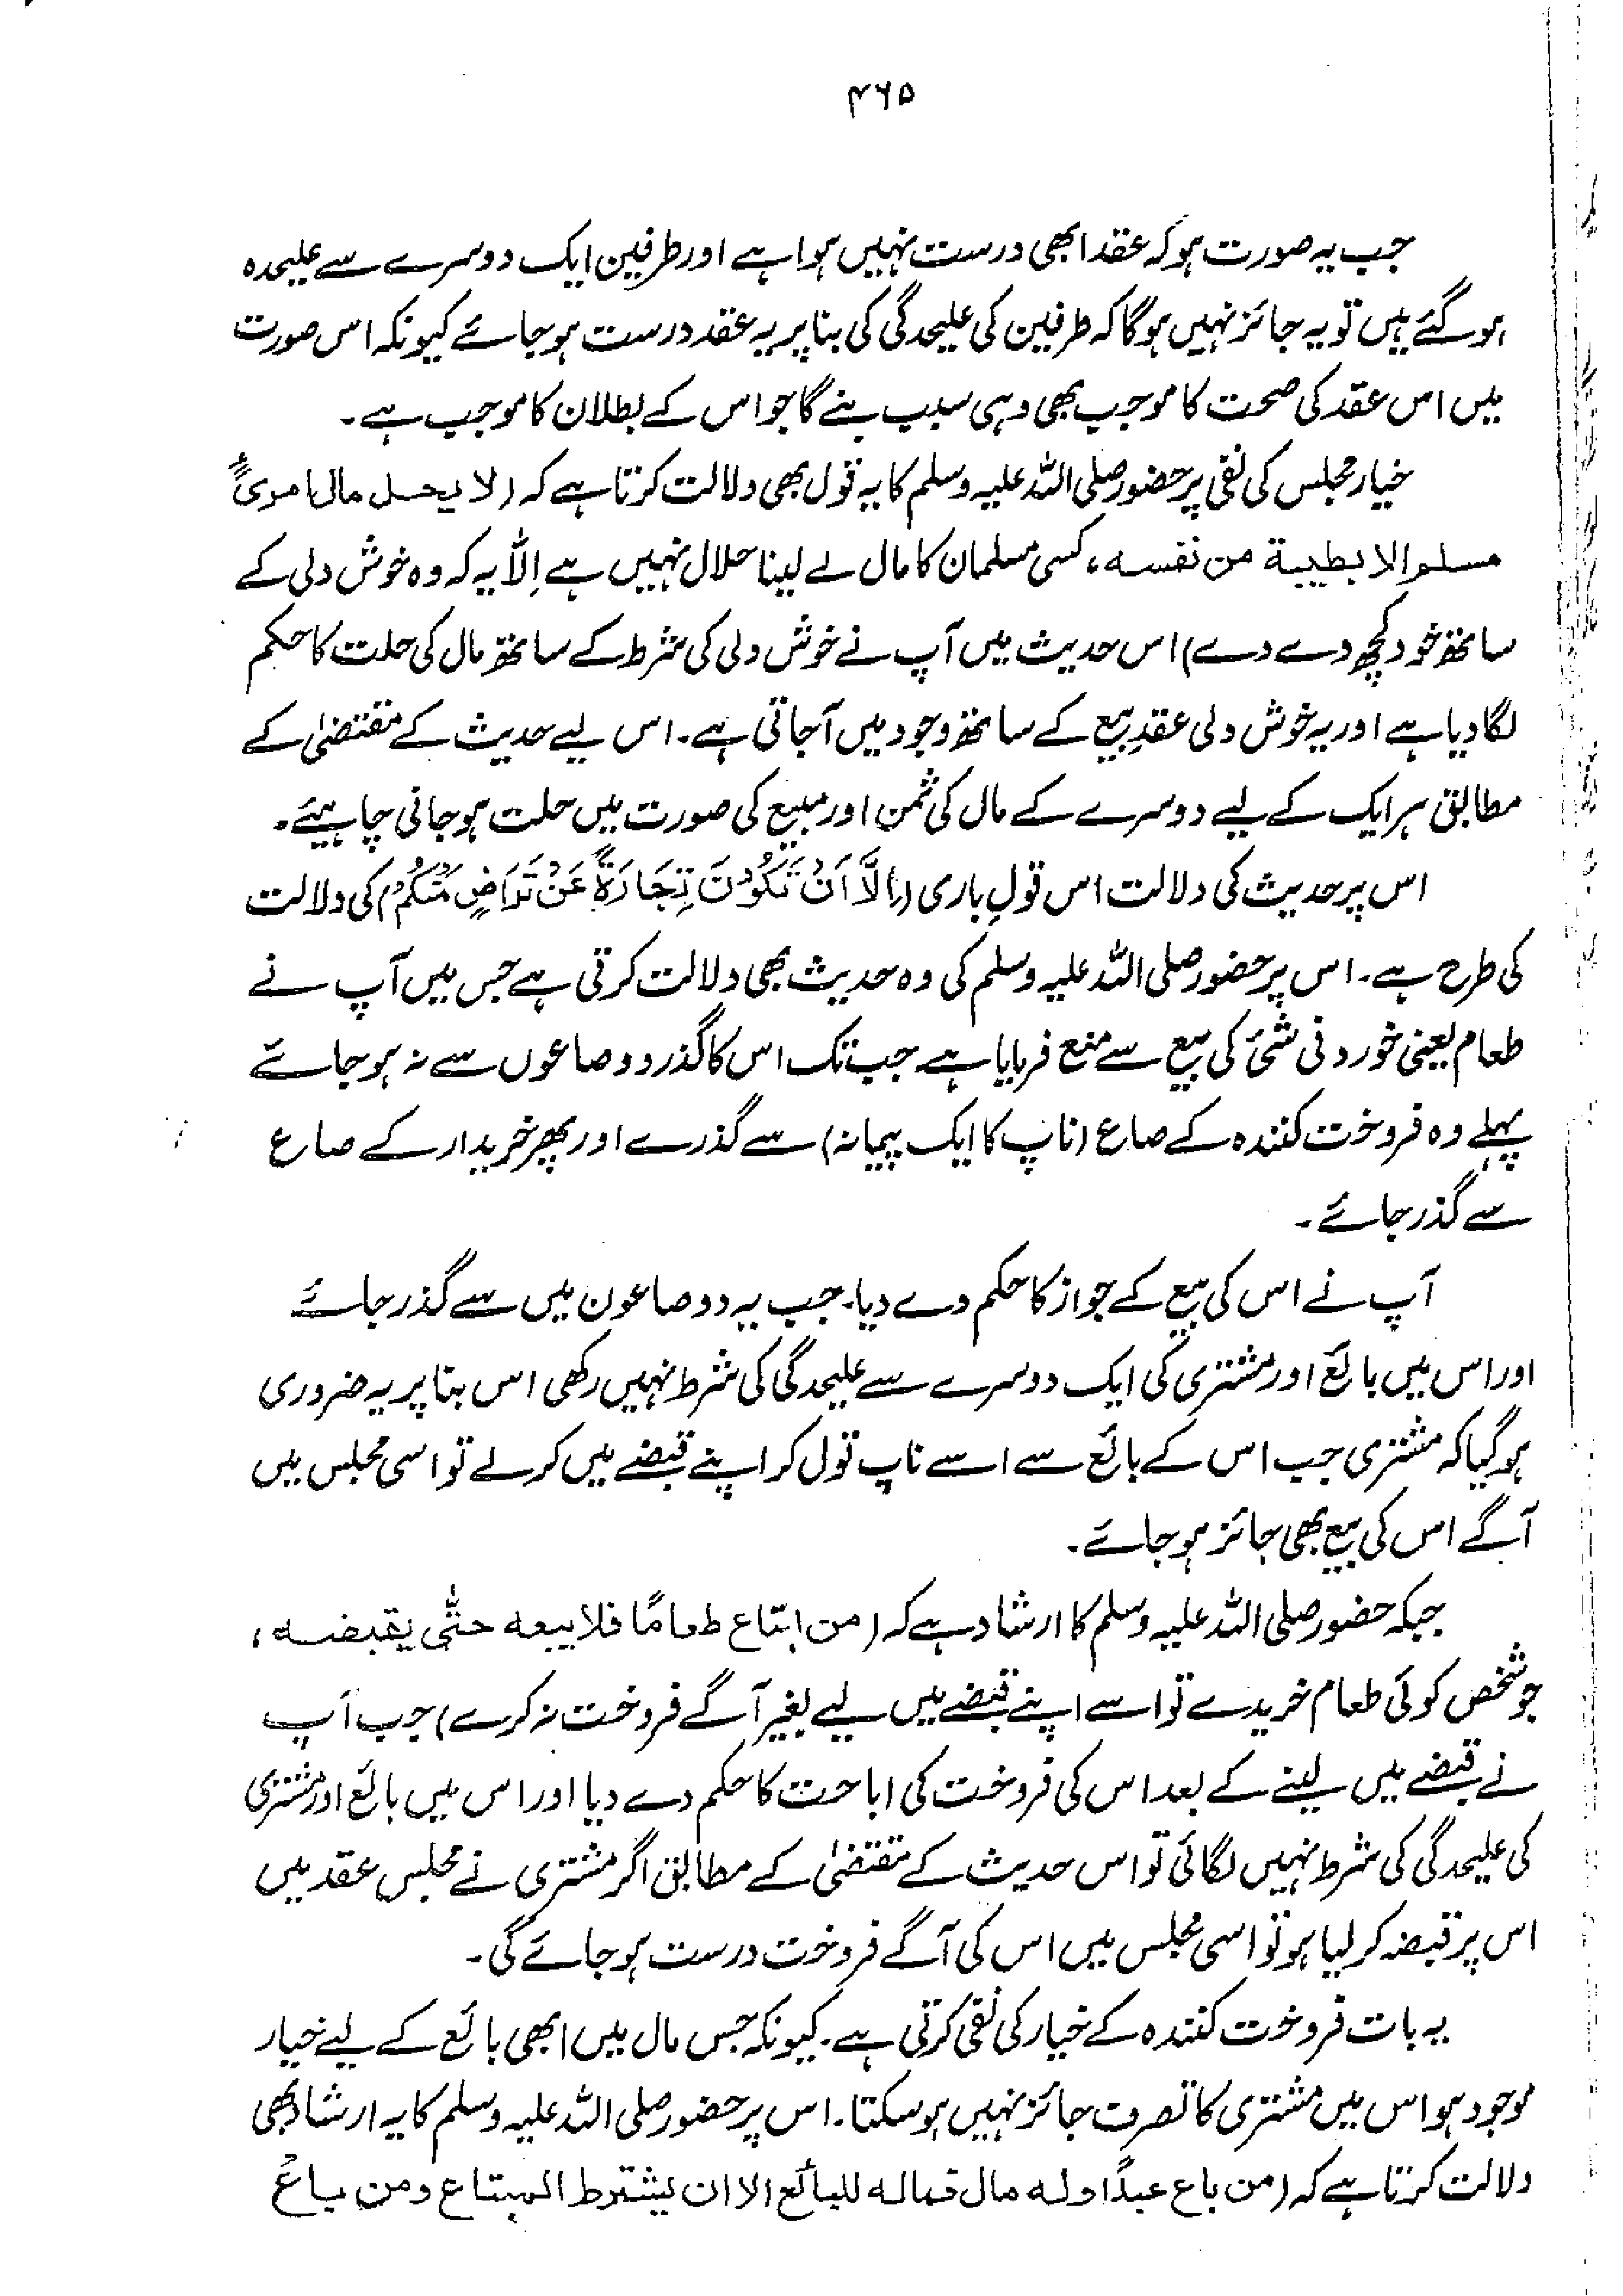 ۴۶۵
جب یہ صورت ہو کہ عقد ابھی درست نہیں ہوا ہے اور طرفین ایک دوسرے سے علیحدہ
ہو گئے ہیں تو یہ جائز نہیں ہوگا کہ طرفین کی علیحدگی کی بنا پر یہ عقد درست ہو جائے کیونکہ اس صورت
میں اس عقد کی صحت کا موجب بھی وہی سبب بنے گا جو اس کے بطلان کا موجب ہے۔
خیار مجلس کی نفی پر حضور صلی اللہ علیہ وسلم کا یہ قول بھی دلالت کرتا ہے کہ (لا یحل مال امرئٍ
مسلم الا بطیبة من نفسه، کسی مسلمان کا مال لے لینا حلال نہیں ہے اِلّا یہ کہ وہ خوش دلی کے
ساتھ خود کچھ دے دے) اس حدیث میں آپ نے خوش دلی کی شرط کے ساتھ مال کی حلت کا حکم
لگا دیا ہے اور یہ خوش دلی عقدِ بیع کے ساتھ وجود میں آجاتی ہے۔ اس لیے حدیث کے مقتضیٰ کے
مطابق ہر ایک کے لیے دوسرے کے مال کی ثمن اور مبیع کی صورت میں حلت ہو جانی چاہیئے۔
اس پر حدیث کی دلالت اس قولِ باری (اِلَّا اَنْ تَكُوْنَ تِجَارَةً عَنْ تَرَاضٍ مِّنْكُمْ) کی دلالت
کی طرح ہے۔ اس پر حضور صلی اللہ علیہ وسلم کی وہ حدیث بھی دلالت کرتی ہے جس میں آپ نے
طعام یعنی خوردنی شئی کی بیع سے منع فرمایا ہے جب تک اس کا گذر دو صاعوں سے نہ ہو جائے
پہلے وہ فروخت کنندہ کے صاع (ناپ کا ایک پیمانہ) سے گذرے اور پھر خریدار کے صاع
سے گذر جائے۔
آپ نے اس کی بیع کے جواز کا حکم دے دیا۔ جب یہ دو صاعوں میں سے گذر جائے
اور اس میں بائع اور مشتری کی ایک دوسرے سے علیحدگی کی شرط نہیں رکھی اس بنا پر یہ ضروری
ہوگیا کہ مشتری جب اس کے بائع سے اسے ناپ تول کر اپنے قبضے میں کر لے تو اسی مجلس میں
آگے اس کی بیع بھی جائز ہو جائے۔
جبکہ حضور صلی اللہ علیہ وسلم کا ارشاد ہے کہ (من ابتاع طعامًا فلا یبعه حتّٰی یقبضه،
جو شخص کوئی طعام خریدے تو اسے اپنے قبضے میں لیے بغیر آگے فروخت نہ کرے) جب آپ
نے قبضے میں لینے کے بعد اس کی فروخت کی اباحت کا حکم دے دیا اور اس میں بائع اور مشتری
کی علیحدگی کی شرط نہیں لگائی تو اس حدیث کے مقتضیٰ کے مطابق اگر مشتری نے مجلس عقد میں
اس پر قبضہ کر لیا ہو تو اسی مجلس میں اس کی آگے فروخت درست ہو جائے گی۔
یہ بات فروخت کنندہ کے خیار کی نفی کرتی ہے۔ کیونکہ جس مال میں ابھی بائع کے لیے خیار
موجود ہو اس میں مشتری کا تصرف جائز نہیں ہوسکتا۔ اس پر حضور صلی اللہ علیہ وسلم کا یہ ارشاد بھی
دلالت کرتا ہے کہ (من باع عبدًا وله مال فماله للبائع الا ان یشترط المبتاع ومن باع